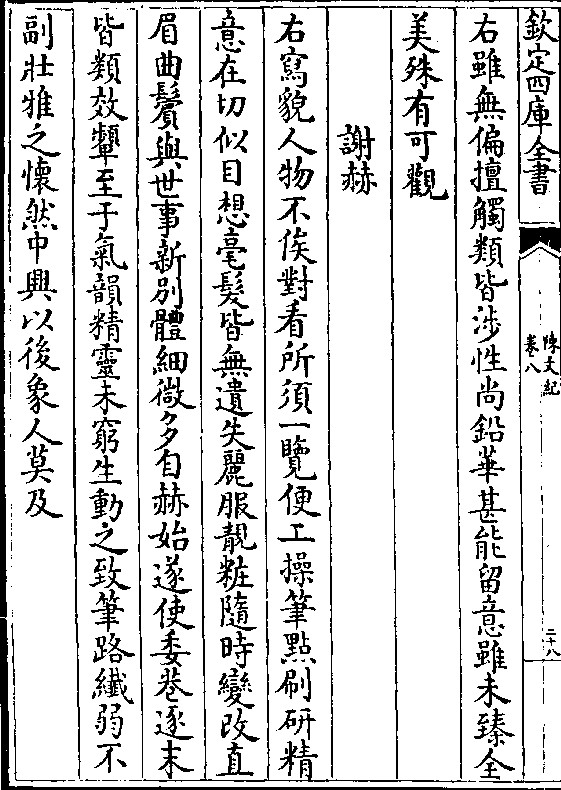 欽定四庫全書
陳文紀
卷八
二十八
右雖無偏擅觸類皆涉性尚鉛華甚能留意雖未臻全
美殊有可觀
謝赫
右寫貌人物不俟對看所須一覽便工操筆點刷研精
意在切似目想毫髮皆無遺失麗服靚粧隨時變改直
眉曲鬢與世事新別體細微多自赫始遂使委巷逐末
皆類效顰至于氣韻精靈未窮生動之致筆路纖弱不
副壯雅之懷然中興以後象人莫及